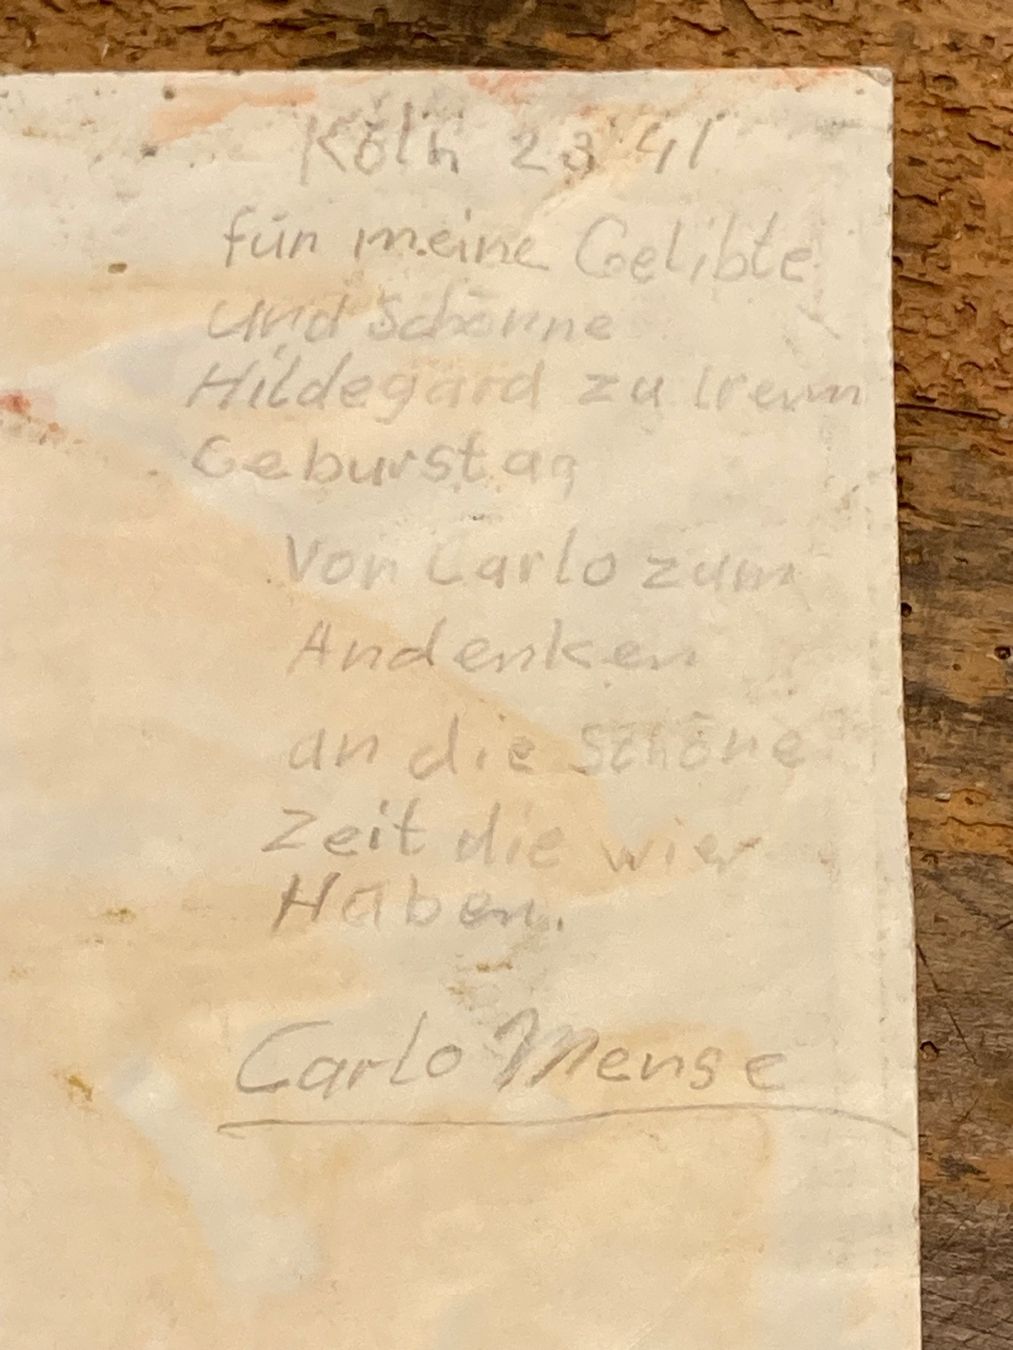 Köln 23 41
für meine Gelibte
und Schönne
Hildegard zu Irem
Geburstag
Von Carlo zum
Andenken
an die Schöne
Zeit die wier
Haben.
Carlo Mense